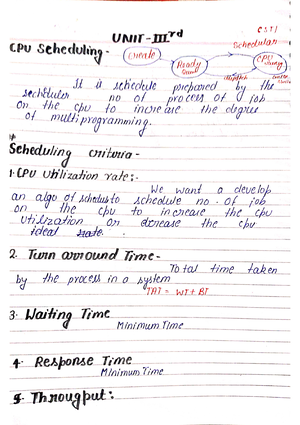 UNIT-IIIrd
CPU Scheduling -
Create
Schedular
Ready
CPU
It is schedule prepared by the
no of process of job
on the cpu to increase the degree
of multiprogramming.
Scheduling criteria -
1. CPU utilization rate:-
We want a develop
an algo of schedule to schedule no. of job
on the cpu to increase the cpu
utilization or decrease the cpu
ideal state.
2. Turn arround Time -
Total time taken
by the process in a system
TAT = WT + BT
3. Waiting Time
Minimum Time
4. Response Time
Minimum Time
5. Througput: